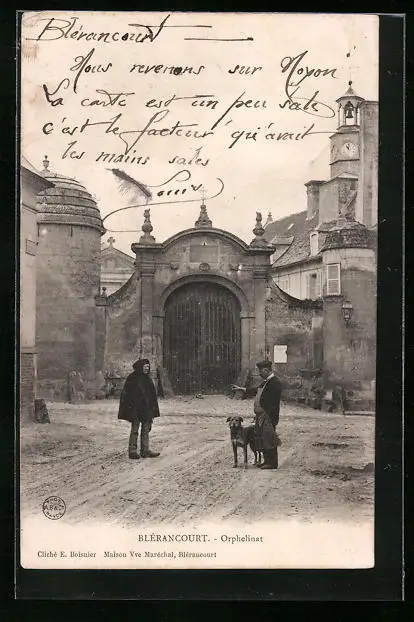 Blérancourt
Nous revenons sur Noyon
La carte est un peu sale
c'est le facteur qu'avait
les mains sales
Louis
BLÉRANCOURT. - Orphelinat
Cliché E. Boisnier Maison Vve Maréchal, Blérancourt